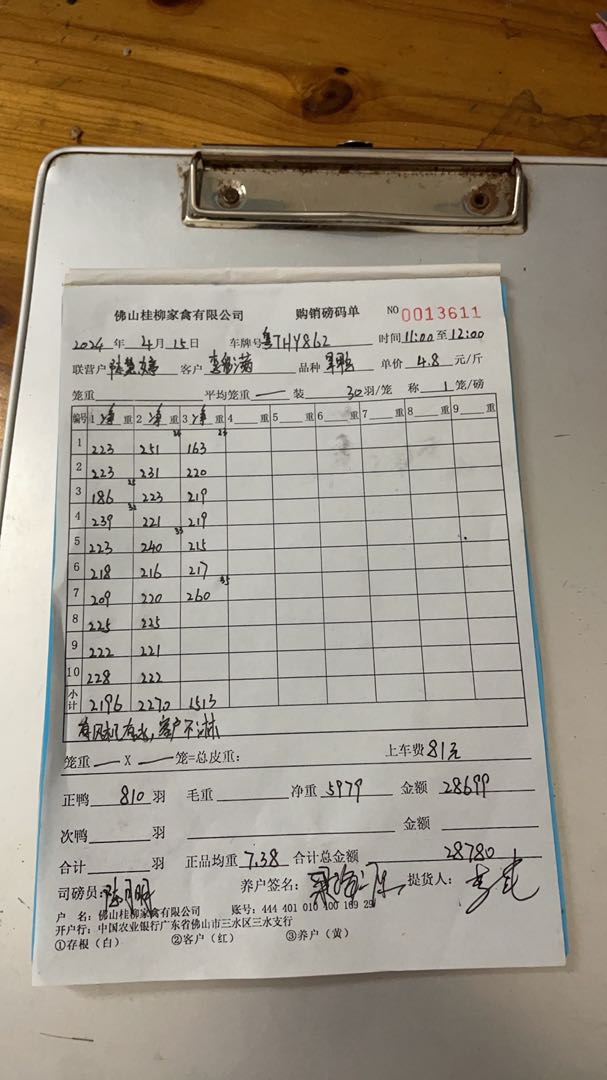 佛山桂柳家禽有限公司 购销磅码单 NO 0013611
2024 年 4 月 15 日 车牌号 粤THY862 时间 11:00 至 12:00
联营户 客户 品种 单价 4.8 元/斤
笼重 平均笼重 — 装 30 羽/笼 称 1 笼/磅
编号 1 净 重 2 净 重 3 净 重 4 重 5 重 6 重 7 重 8 重 9 重
1 223 251 163
2 223 231 220
3 186 223 219
4 239 221 219
5 223 240 215
6 218 216 217
7 209 220 260
8 225 225
9 222 221
10 228 222
小计 2196 2270 1513
有风机有水,客户不淋
笼重 — X — 笼=总皮重: 上车费 81元
正鸭 810 羽 毛重 净重 5979 金额 28699
次鸭 羽 金额
合计 羽 正品均重 7.38 合计总金额 28780
司磅员: 养户签名: 提货人:
户 名: 佛山桂柳家禽有限公司 账号: 444 401 010 400 169 29
开户行: 中国农业银行广东省佛山市三水区三水支行
①存根(白) ②客户(红) ③养户(黄)